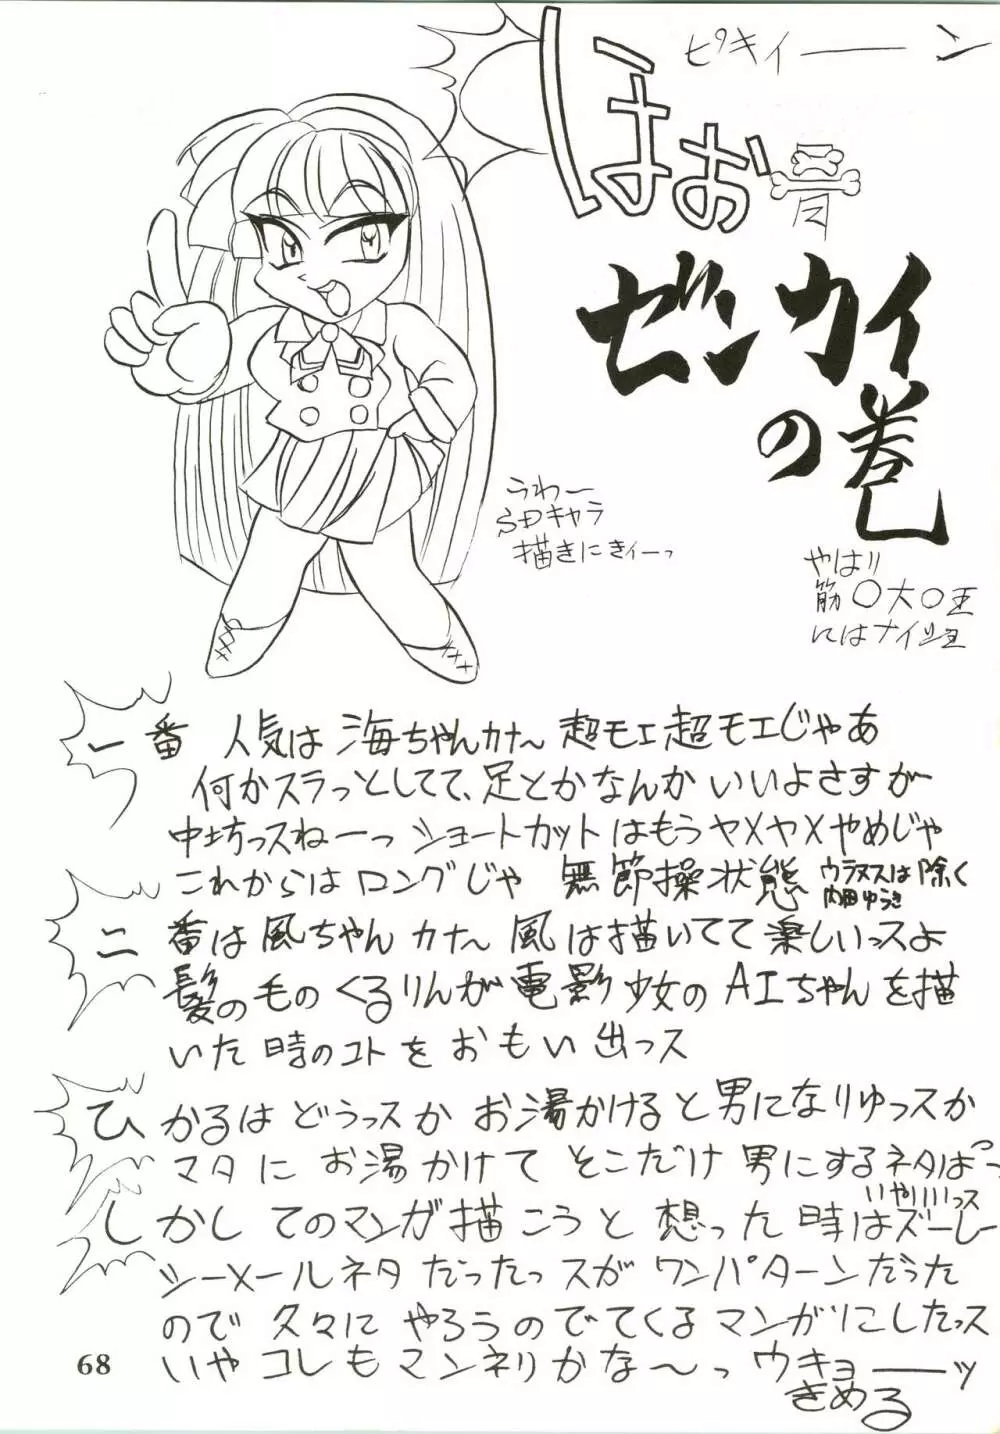 ピキィーーン
ほお骨
ゼンカイ
の巻
うわー
SDキャラ
描きにきィーっ
やはり
筋○大○王
にはナイショ
一番 人気は海ちゃんカナ〜 超モエ超モエじゃあ
何かスラっとしてて、足とかなんかいいよさすが
中坊っスねーっ ショートカットはもうヤメヤメやめじゃ
これからはロングじゃ 無節操状態 ウラヌスは除く
内田ゆうき
二番は風ちゃんカナ〜 風は描いてて楽しいっスよ
髪の毛のくるりんが電影少女のAIちゃんを描
いた時のコトをおもい出っス
ひかるはどうっスか お湯かけると男になりゆっスか
マタにお湯かけてそこだけ男にするネタはっ
いやんっス
しかしてのマンガ描こうと想った時はズーレー
シーメールネタだったっスがワンパターンだった
ので久々にやろうのでてくるマンガにしたっス
いやコレもマンネリかな〜っ ウキョーーッ
きめる
68